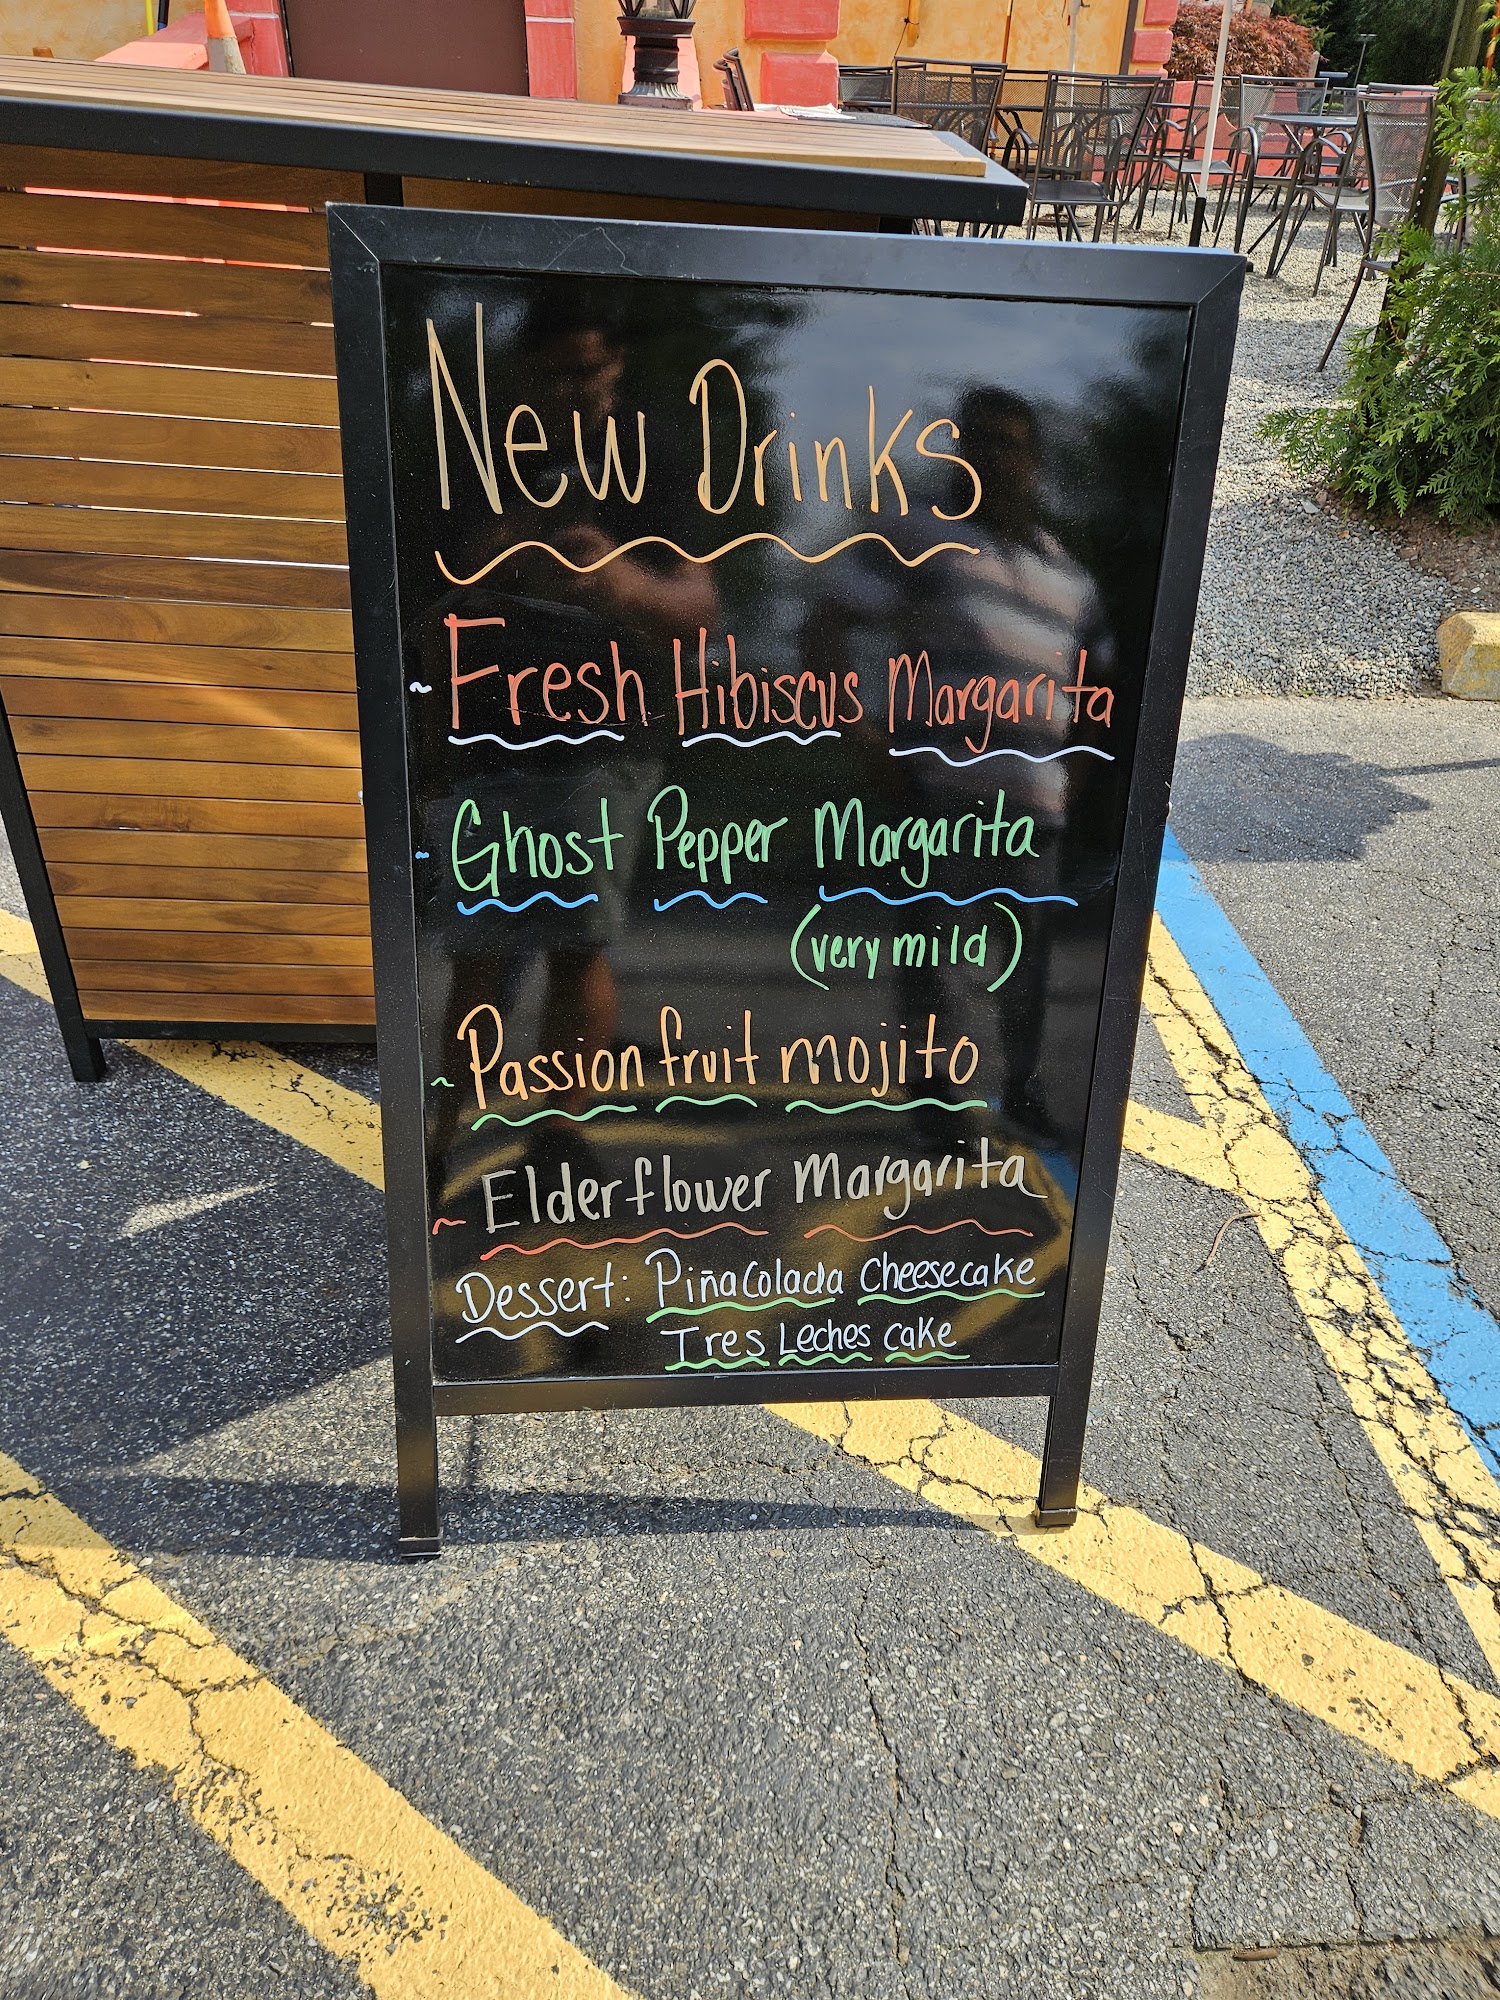 New Drinks
~ Fresh Hibiscus Margarita
~ Ghost Pepper Margarita
(very mild)
~ Passion fruit mojito
~ Elderflower Margarita
Dessert: Piña Colada Cheesecake
Tres Leches cake